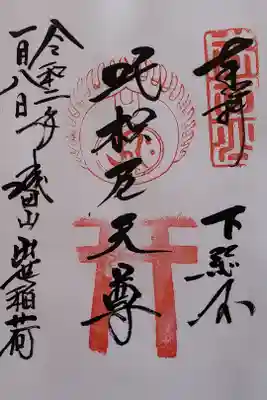 奉拝
下総国
吒枳尼天尊
令和二年
一月八日
成田山 出世稲荷